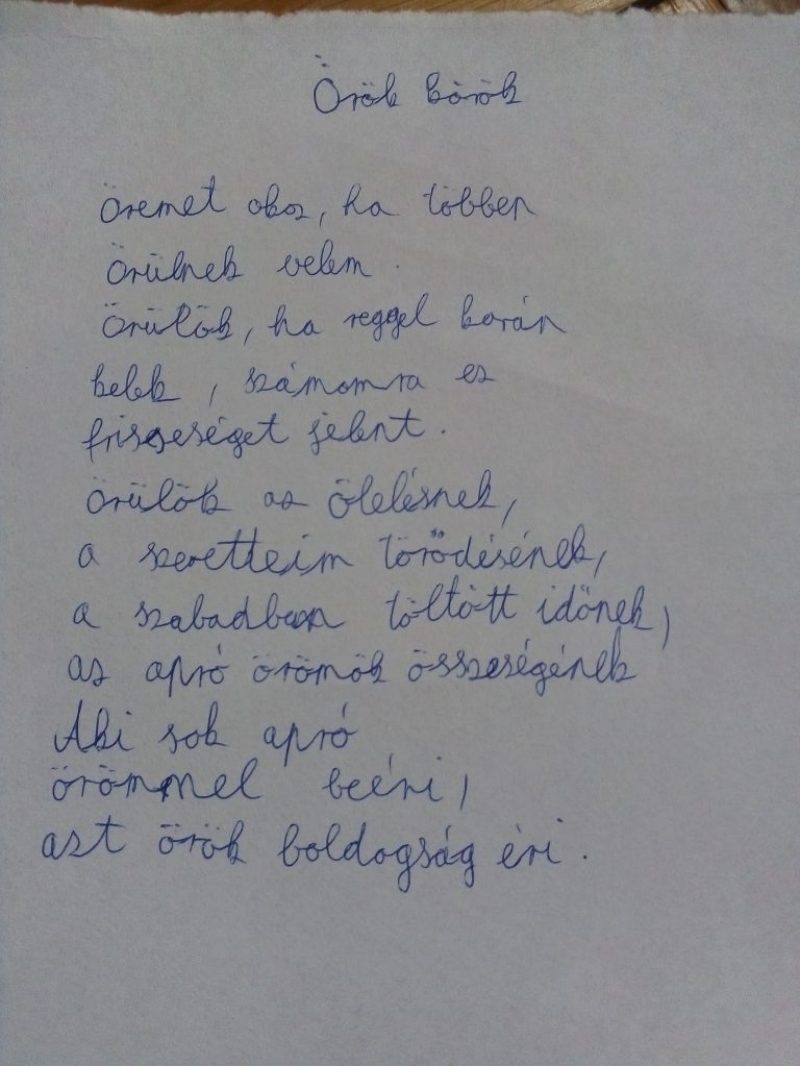 Örök körök
öremet okoz, ha többen
örülnek velem.
örülök, ha reggel korán
kelek, számomra ez
frisseséget jelent.
örülök az ölelésnek,
a szeretteim törődésének,
a szabadban töltött időnek,
az apró örömök összeségének
Aki sok apró
örömmel beéri,
azt örök boldogság éri.